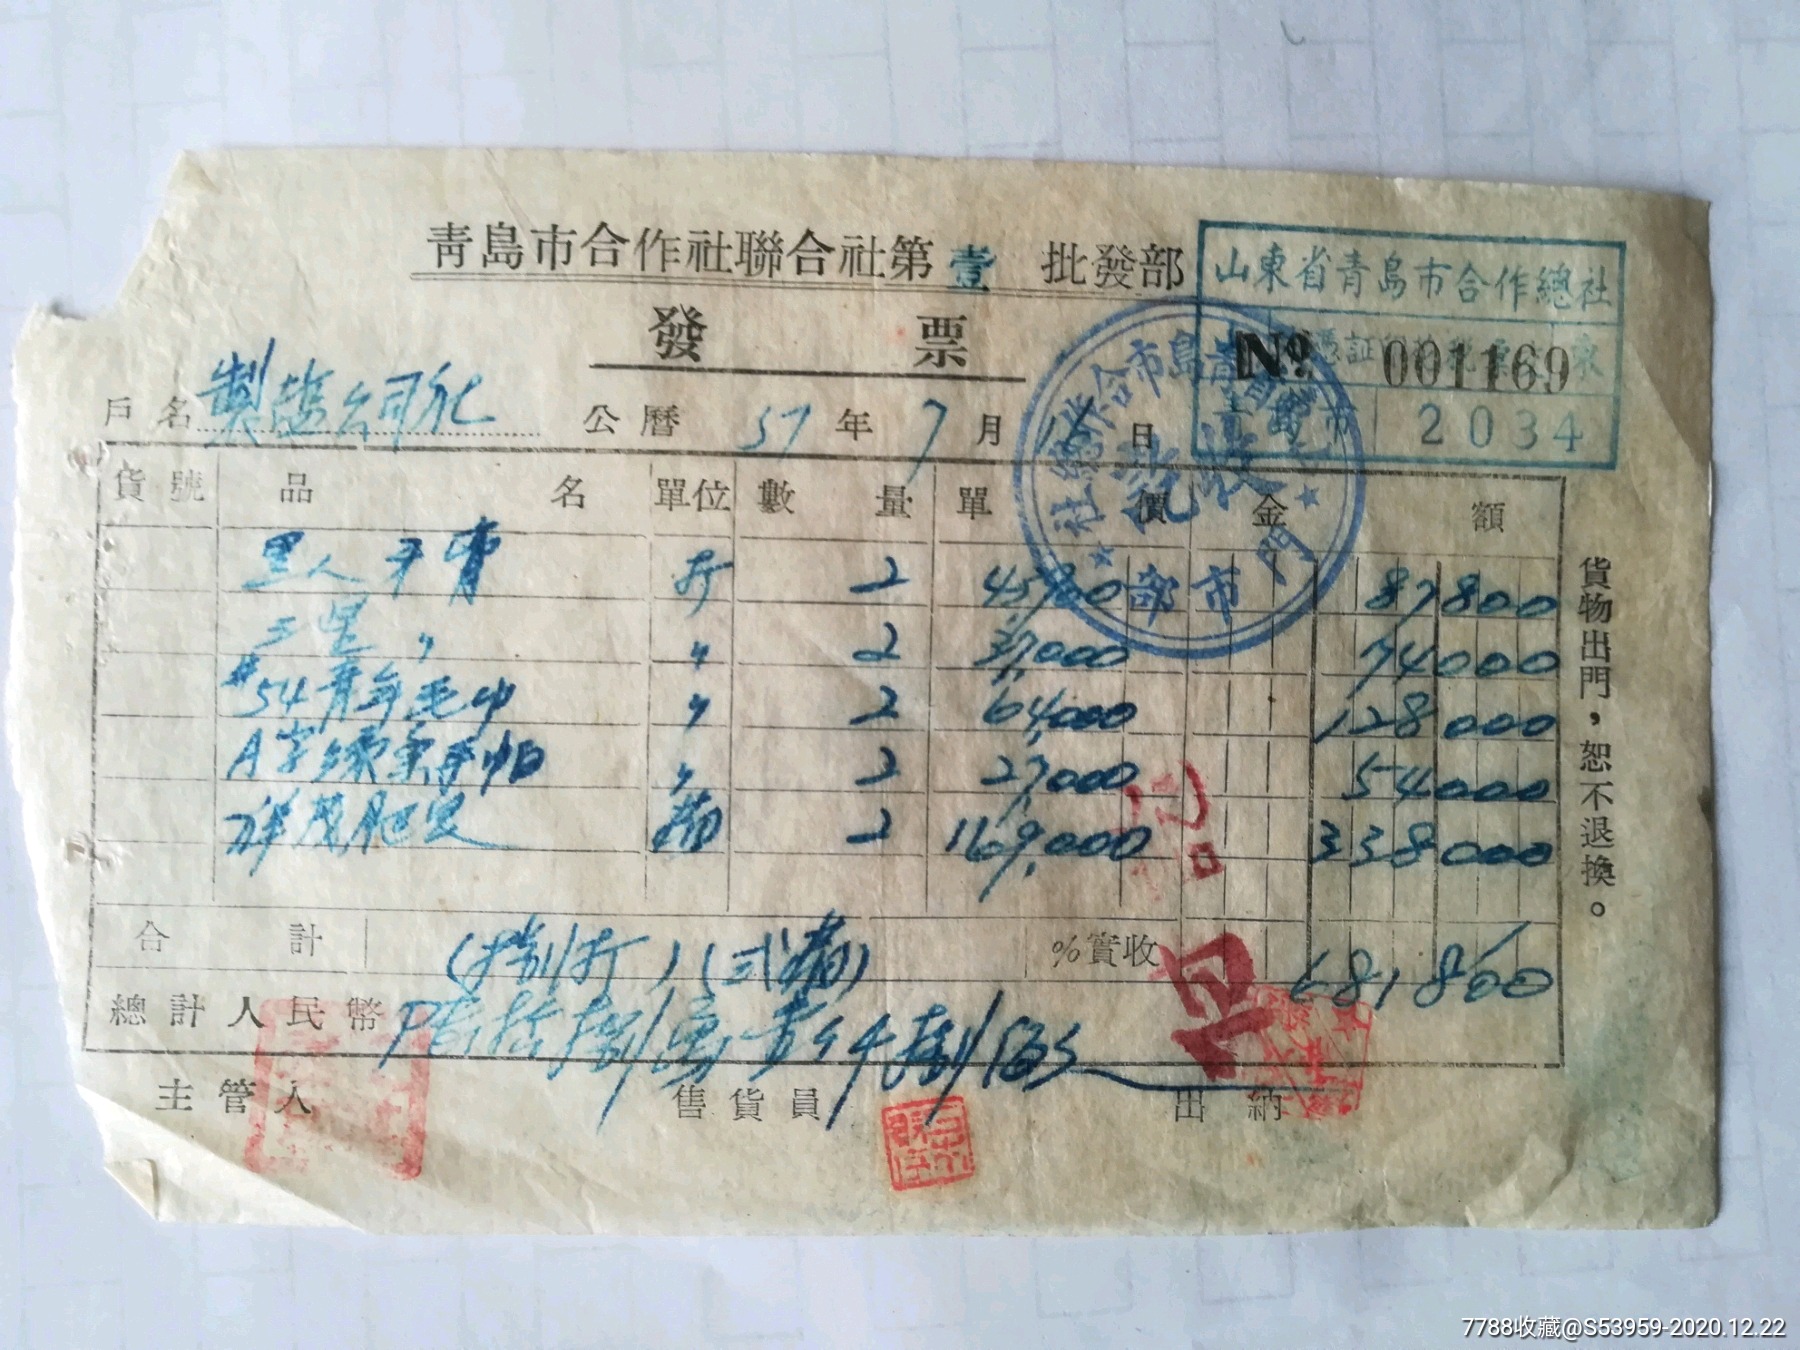 青島市合作社聯合社第壹 批發部
山東省青島市合作總社
發 票
№ 001169
2034
戶名 製塩公司化
公曆 57 年 7 月 日
貨號 品名 單位 數量 單價 金額
黑人牙膏 打 2 87800
三星 〃 〃 2 37,000 74000
#54青年毛巾 〃 2 64,000 128000
A字 手帕 〃 2 27,000 54000
祥茂肥皂 箱 2 169,000 338000
合計 (捌打)(弍箱) %實收 681800
總計人民幣 陸拾捌萬壹仟捌佰
主管人 售貨員 出納
貨物出門，恕不退換。
門市部
7788收藏@S53959-2020.12.22